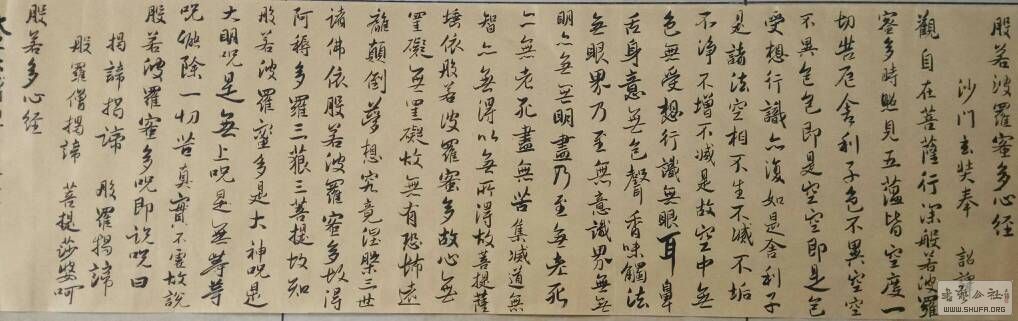 般若波羅蜜多心經
沙門玄奘奉 詔譯
觀自在菩薩行深般若波羅
蜜多時照見五蘊皆空度一
切苦厄舍利子色不異空空
不異色色即是空空即是色
受想行識亦復如是舍利子
是諸法空相不生不滅不垢
不淨不增不減是故空中無
色無受想行識無眼耳鼻
舌身意無色聲香味觸法
無眼界乃至無意識界無無
明亦無無明盡乃至無老死
亦無老死盡無苦集滅道無
智亦無得以無所得故菩提薩
埵依般若波羅蜜多故心無
罣礙無罣礙故無有恐怖遠
離顛倒夢想究竟涅槃三世
諸佛依般若波羅蜜多故得
阿耨多羅三藐三菩提故知
般若波羅蜜多是大神咒是
大明咒是無上咒是無等等
咒能除一切苦真實不虛故說
般若波羅蜜多咒即說咒曰
揭諦揭諦 般羅揭諦
般羅僧揭諦 菩提莎婆呵
般若多心經
WWW.SHUFA.ORG